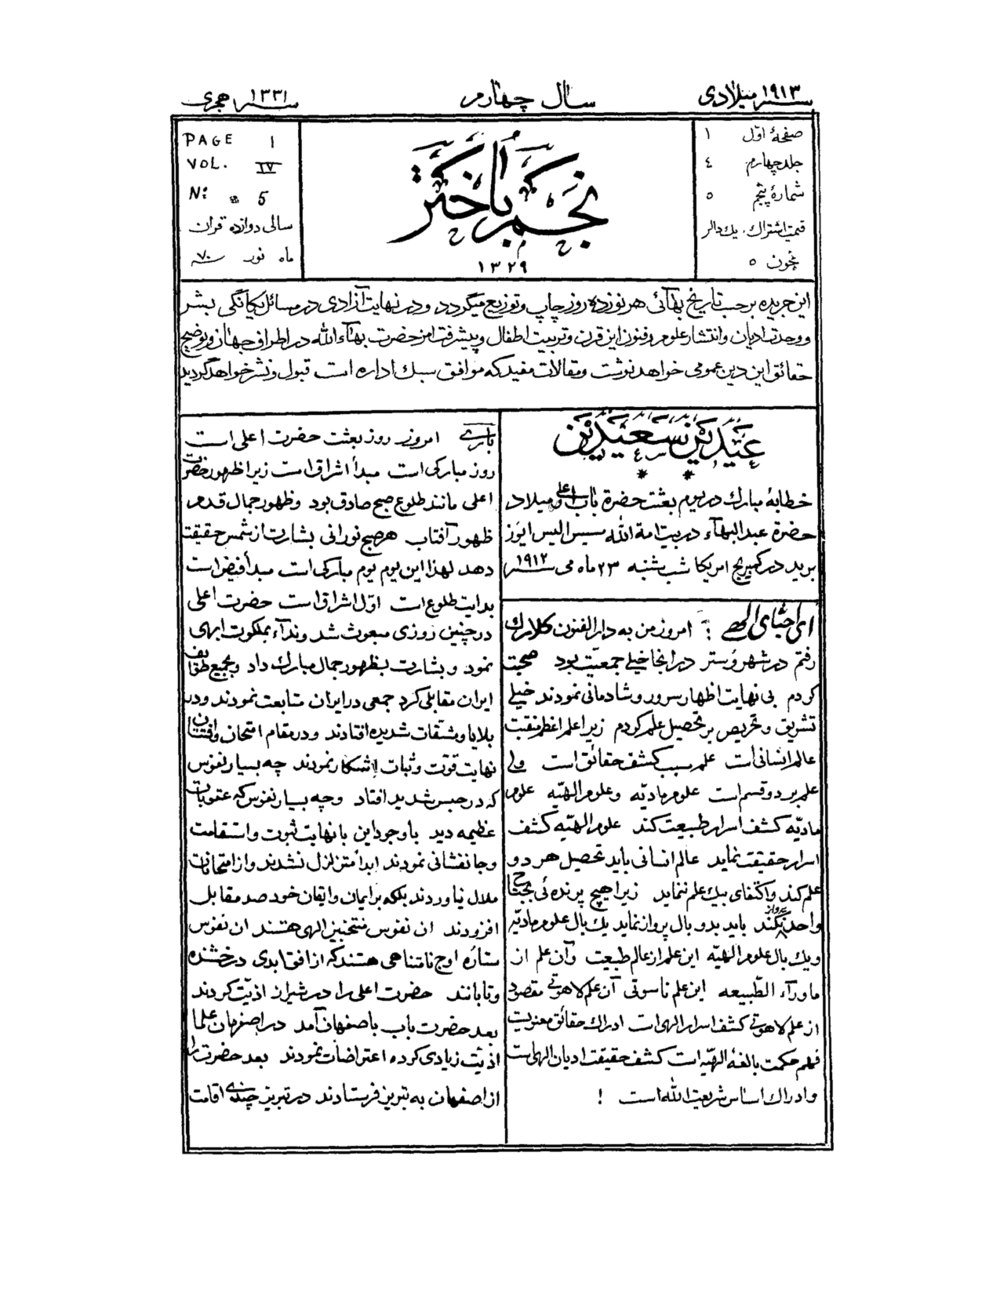 سنه ١٩١٣ میلادی
سال چهارم
سنه ١٣٣١ هجری
صفحهٔ اوّل ١
جلد چهارم ٤
شمارهٔ پنجم ٥
قیمت اشتراک، یک دالر
نجم باختر
١٣٢٩
PAGE 1
VOL. IV
Nº 5
سالی دوازده قران
ماه نور سنه ٧٠
این جریده برحسب تاریخ بهائی هر نوزده روز چاپ و توزیع میگردد و در نهایت آزادی در مسائل یگانگی بشر
و وحدت ادیان و انتشار علوم و فنون این قرن و تربیت اطفال و پیشرفت امر حضرت بهآءالله در اطراف جهان و توضیح
حقائق این دین عمومی خواهد نوشت و مقالات مفید که موافق سبک اداره است قبول و نشر خواهد گردید
عیدین سعیدین
* *
خطابهٔ مبارک در یوم بعثت حضرة باب اعلی و میلاد
حضرة عبدالبهآء در بیت امة الله مسیس الیس ایوز
برید در کمبریج امریکا شب شنبه ٢٣ ماه می سنه ١٩١٢
ای احبّای الهی ! امروز من به دار الفنون کلارک
رفتم در شهر وستر در انجا خیلی جمعیّت بود صحبت
کردم بی نهایت اظهار سرور و شادمانی نمودند خیلی
تشویق و تحریص بر تحصیل علم کردم زیرا علم اعظم منقبت
عالم انسانی است علم سبب کشف حقائق است ولی
علم بر دو قسم است علوم مادیّه و علوم الهیّه علوم
مادیّه کشف اسرار طبیعت کند علوم الهیّه کشف
اسرار حقیقت نماید عالم انسانی باید تحصیل هر دو
علم کند و اکتفای بیک علم ننماید زیرا هیچ پرنده ئی بجناح
واحد پرواز نکند باید بدو بال پرواز نماید یک بال علوم مادیّه
و یک بال علوم الهیّه این علم از عالم طبیعت و آن علم از
ماورآء الطّبیعه این علم ناسوتی آن علم لاهوتی مقصود
از علم لاهوتی کشف اسرار الهی است ادراک حقائق معنویست
فهم حکمت بالغهٔ الهیّه است کشف حقیقت ادیان الهی است
و ادراک اساس شریعت الله است !
باری امروز روز بعثت حضرت اعلی است
روز مبارکی است مبدأ اشراق است زیرا ظهور حضرت
اعلی مانند طلوع صبح صادق بود و ظهور جمال قدم
ظهور آفتاب هر صبح نورانی بشارت از شمس حقیقت
دهد لهذا این یوم یوم مبارکی است مبدأ فیض است
بدایت طلوع است اوّل اشراق است حضرت اعلی
در چنین روزی مبعوث شد و ندآء بملکوت ابهی
نمود و بشارت بظهور جمال مبارک داد و بجمیع طوایف
ایران مقابلی کرد جمعی در ایران متابعت نمودند و در
بلایا و مشقات شدیده افتادند و در مقام امتحان و افتتان
نهایت قوّت و ثبات اشکار نمودند چه بسیار نفوس
که در حبس شدید افتاد و چه بسیار نفوس که عقوبات
عظیمه دید با وجود این با نهایت ثبوت و استقامت
و جانفشانی نمودند ابداً متزلزل نشدند و از امتحانات
ملال نیاوردند بلکه بر ایمان و ایقان خود صد مقابل
افزودند ان نفوس منتخبین الهی هستند ان نفوس
ستارهٔ اوج نامتناهی هستند که از افق ابدی درخشنده
و تابانند حضرت اعلی را در شیراز اذیّت کردند
بعد حضرت باب باصفهان آمد در اصفهان علما
اذیّت زیادی کرده اعتراضات نمودند بعد حضرت را
از اصفهان به تبریز فرستادند در تبریز چندی اقامت